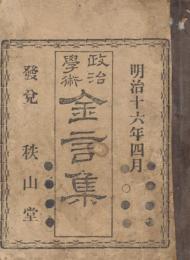 明治十六年四月
政治
學術
金言集
發兌 秋山堂